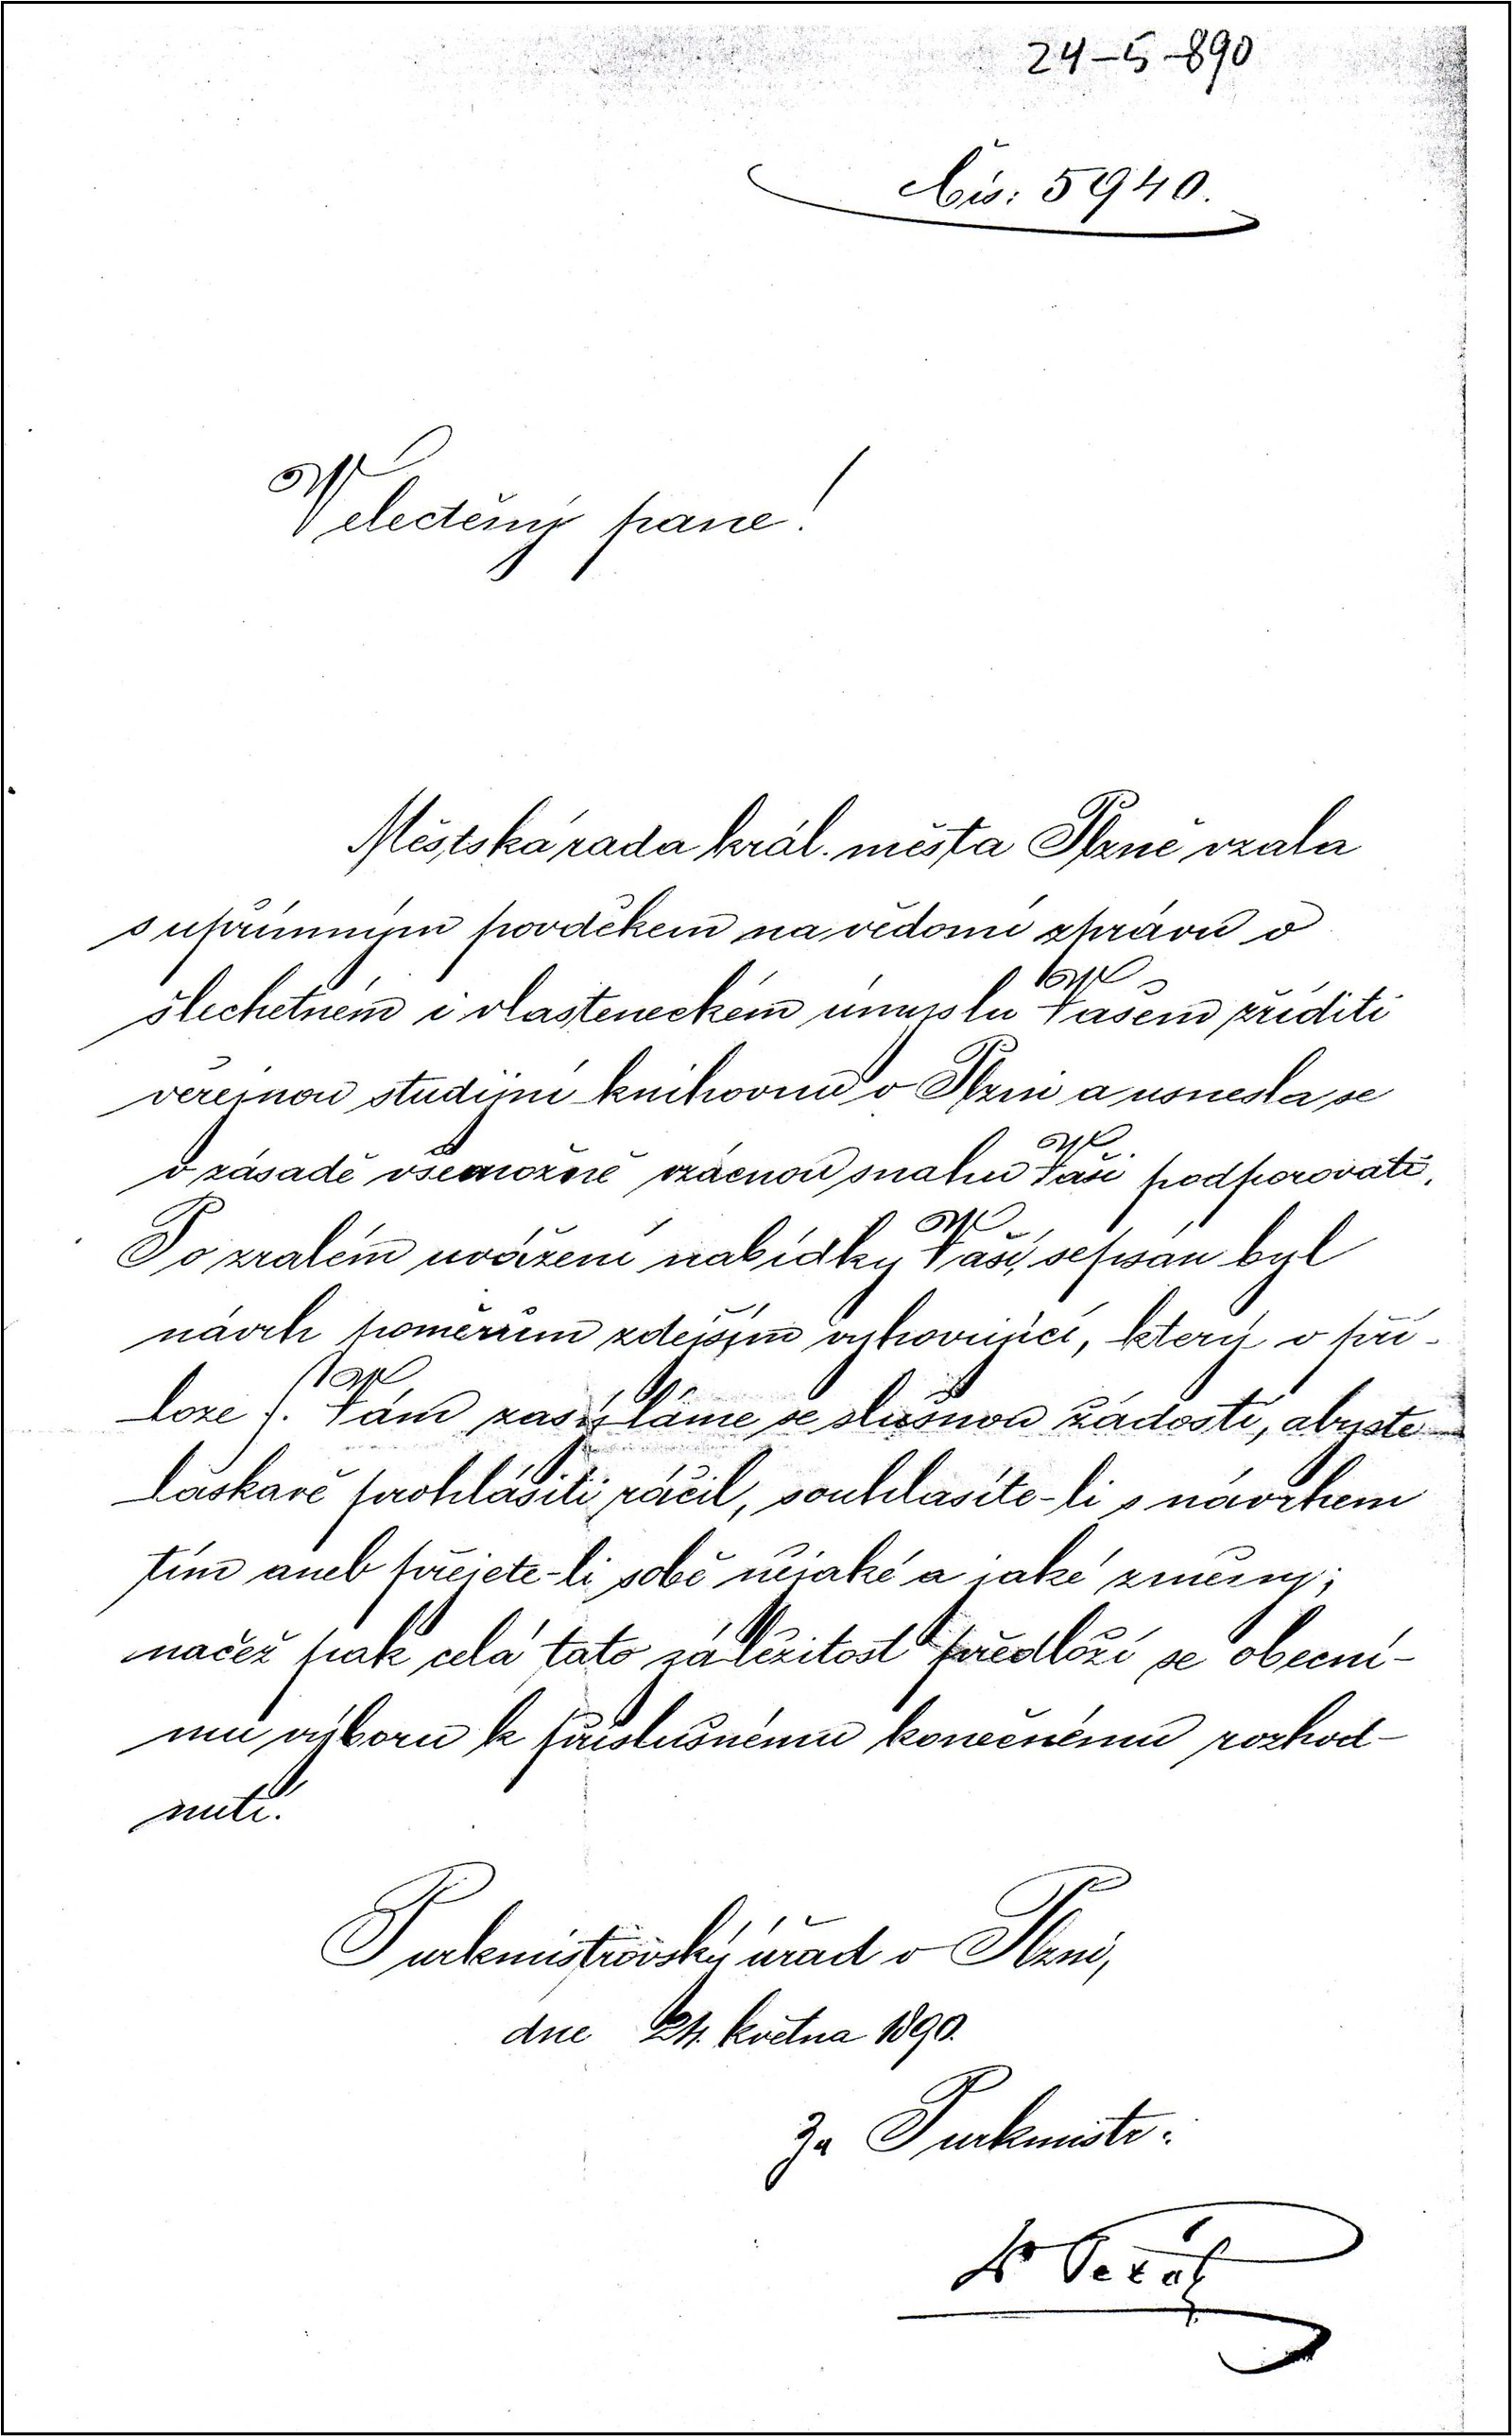 24-5-890
Čís: 5940.
Velectěný pane!
Městská rada král. města Plzně vzala
s upřímným povděkem na vědomí zprávu o
šlechetném i vlasteneckém úmyslu Vašem zříditi
veřejnou studijní knihovnu v Plzni a usnesla se
v zásadě všemožně vzácnou snahu Vaši podporovati.
Po zralém uvážení nabídky Vaší, sepsán byl
návrh poměrům zdejším vyhovující, který v pří-
loze ς. Vám zasýláme se slušnou žádostí, abyste
laskavě prohlásiti ráčil, souhlasíte-li s návrhem
tím aneb přejete-li sobě nějaké a jaké změny;
načež pak celá tato záležitost předloží se obecní-
mu výboru k příslušnému konečnému rozhod-
nutí.
Purkmistrovský úřad v Plzni,
dne 24. května 1890.
Za Purkmistr:
Dr